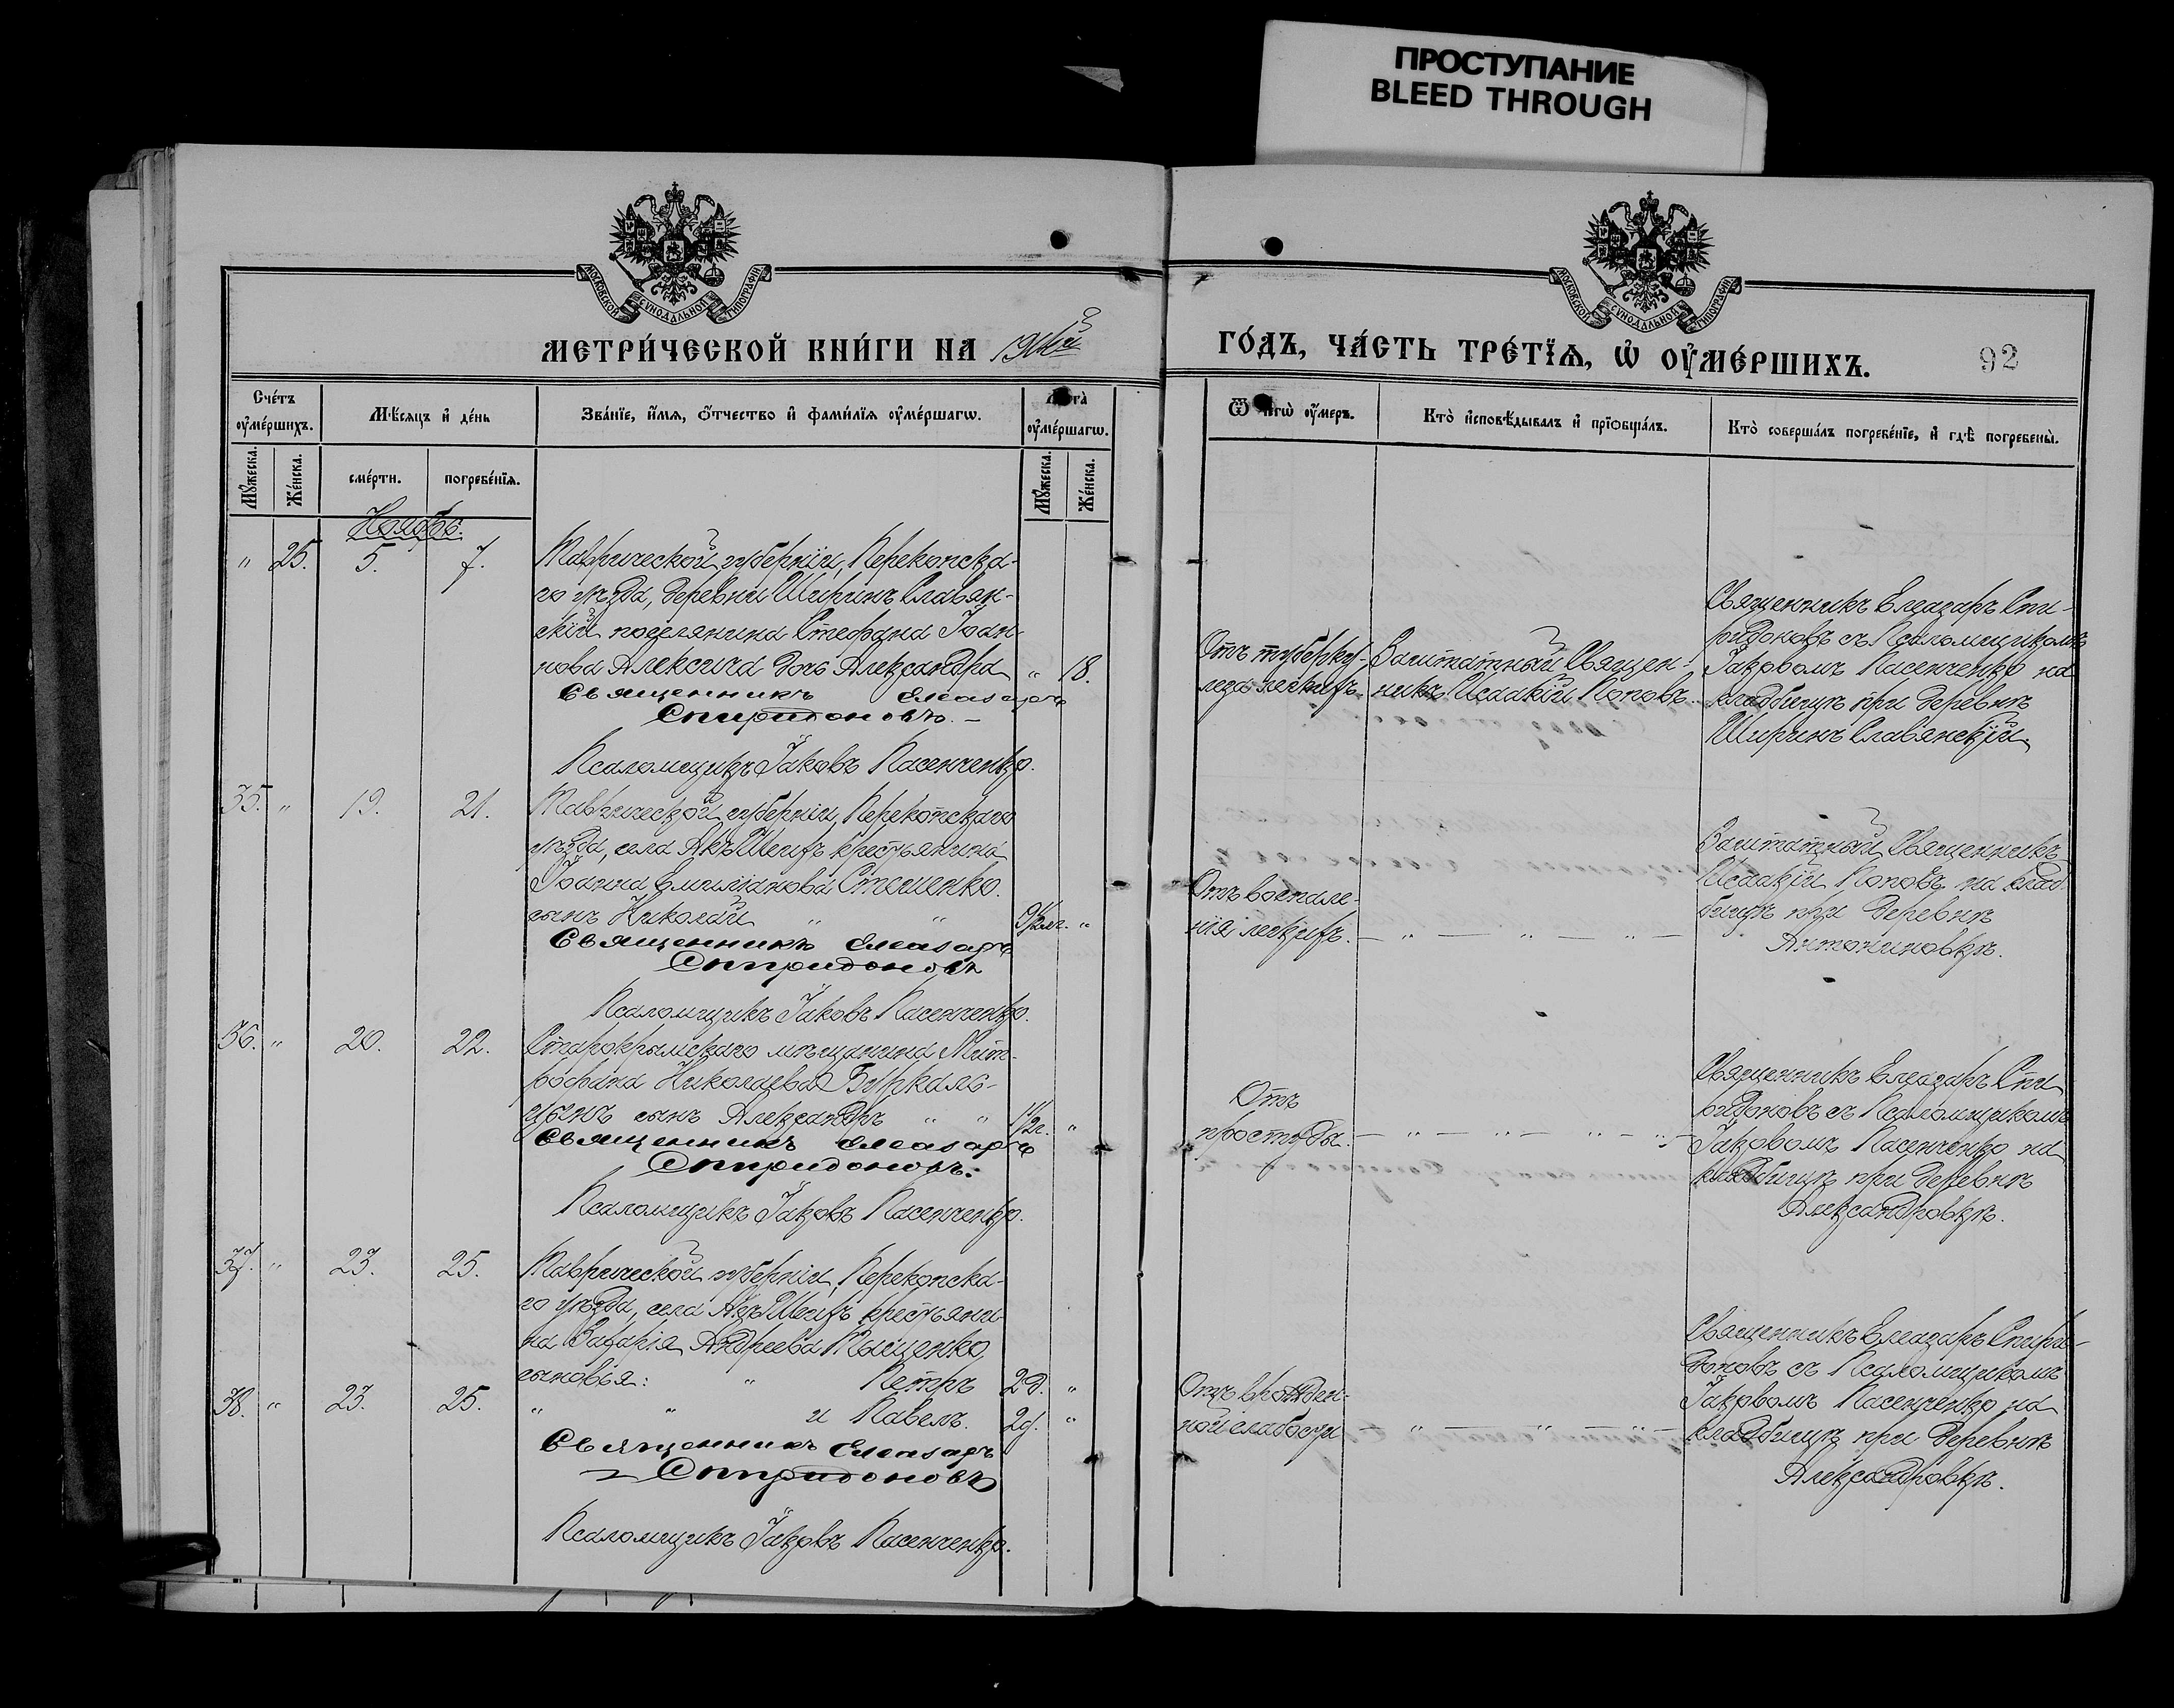 ПРОСТУПАНИЕ
BLEED THROUGH
МОСКОВСКОЙ СѴНОДАЛЬНОЙ ТИПОГРАФІИ
МОСКОВСКОЙ СѴНОДАЛЬНОЙ ТИПОГРАФІИ
МЕТРИ́ЧЕСКОЙ КНИ́ГИ НА
ГО́ДЪ, ЧА́СТЬ ТРЕ́ТЇѦ, Ѡ҆ ОУ҆МЕ́РШИХЪ.
92
Сче́тъ оу҆ме́ршихъ.
Мѣ́сяцъ и҆ де́нь
Зва́нїе, и҆́мѧ, ѻ҆́тчество и҆ фами́лїѧ оу҆ме́ршагѡ.
Лѣта̀ оу҆ме́ршагѡ.
Ѿ чегѡ̀ оу҆́меръ.
Кто̀ и҆сповѣ́дывалъ и҆ прїѡбща́лъ.
Кто̀ соверша́лъ погребе́нїе, и҆ гдѣ̀ погребены̀.
Мꙋ́жеска.
Же́нска.
сме́рти.
погребе́нїѧ.
Мꙋ́жеска.
Же́нска.
Ноябрь.
" 25. 5. 7.
Таврической губерніи, Перекопска-
го уѣзда, деревни Ширинъ Славян-
скій поселянина Стефана Іоан-
нова Алексича дочь Александра " 18.
Священникъ Елеазаръ
Спиридоновъ.
Псаломщикъ Іаковъ Пасенченко.
Отъ туберку-
леза легкихъ
Заштатный Священ-
никъ Исаакій Поповъ.
Священникъ Елеазаръ Спи-
ридоновъ съ Псаломщикомъ
Іаковомъ Пасенченко на
кладбищѣ при деревнѣ
Ширинъ Славянскій
35. " 19. 21.
Таврической губерніи, Перекопскаго
уѣзда, села Акъ Шеихъ крестьянина
Іоанна Емиліанова Стешенко.
сынъ Николай " "
Священникъ Елеазаръ
Спиридоновъ
Псаломщикъ Іаковъ Пасенченко.
Отъ воспале-
нія легкихъ. — " — " — " —
Заштатный Священникъ
Исаакій Поповъ на клад-
бищѣ при деревнѣ
Антониновкѣ.
36. " 20. 22.
Старокрымскаго мѣщанина Мит-
рофана Николаева
сынъ Александръ " " 1/2г. "
Священникъ Елеазаръ
Спиридоновъ.
Псаломщикъ Іаковъ Пасенченко.
Отъ
простуды. — " — " — " — " —
Священникъ Елеазаръ Спи
ридоновъ съ Псаломщикомъ
Іаковомъ Пасенченко на
кладбищѣ при деревнѣ
Александровкѣ.
37. " 23. 25.
Таврической губерніи, Перекопска-
го уѣзда, села Акъ Шеихъ крестьяни-
на Захарія Андреева Тащенко,
сыновья: " Петръ 2д. "
38. " 23. 25.
" " и Павелъ. 2д. "
Священникъ Елеазаръ
Спиридоновъ
Псаломщикъ Іаковъ Пасенченко.
Отъ врожден-
ной слабости — " — " — " —
Священникъ Елеазаръ Спири-
доновъ съ Псаломщикомъ
Іаковомъ Пасенченко на
кладбищѣ при деревнѣ
Александровкѣ.